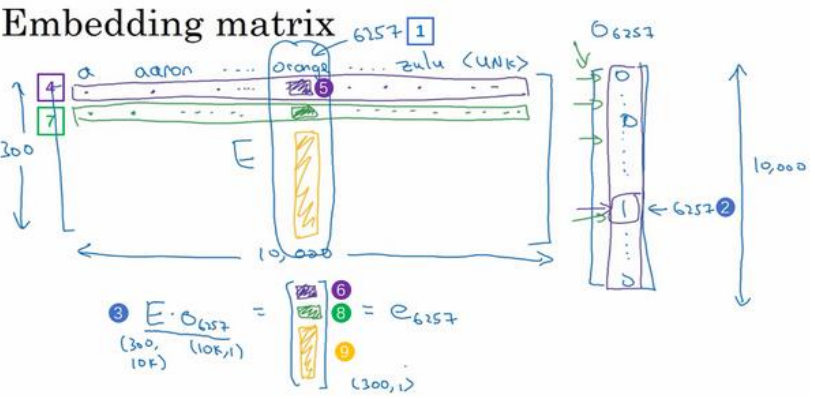 Embedding matrix
6257 1
O6257
a aaron .... orange .... zulu <UNK>
4
5
7
300
E
10,000
0
0
1 ← 6257 2
0
10,000
3 E · O6257 = 6 8 9 = e6257
(300, 10K) (10K,1)
(300,1)